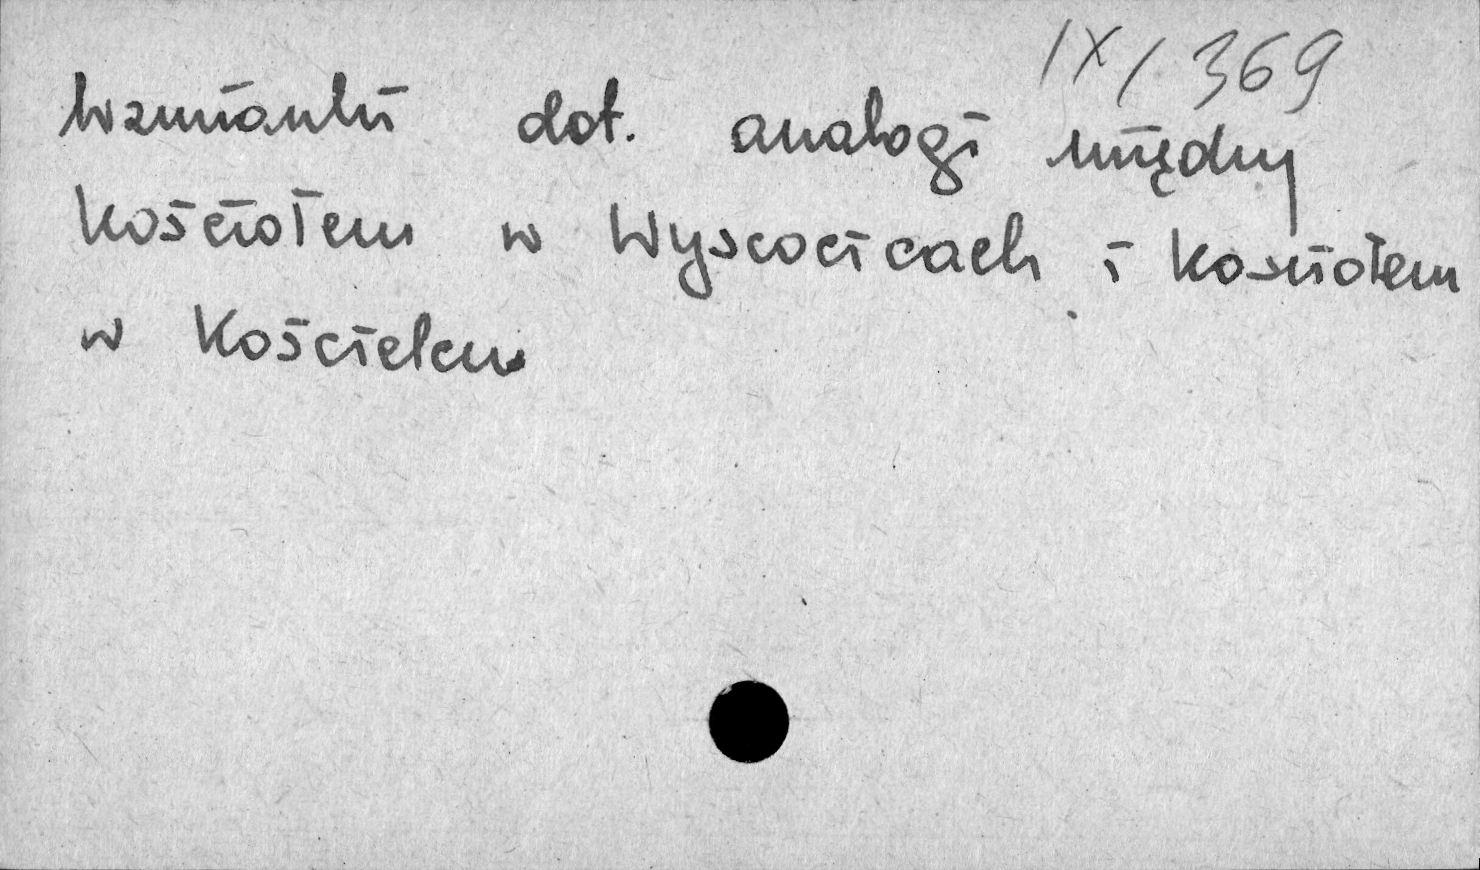 IX/369
Wzmianki dot. analogi między
kościołem w Wysocicach i kościołem
w Kościelcu